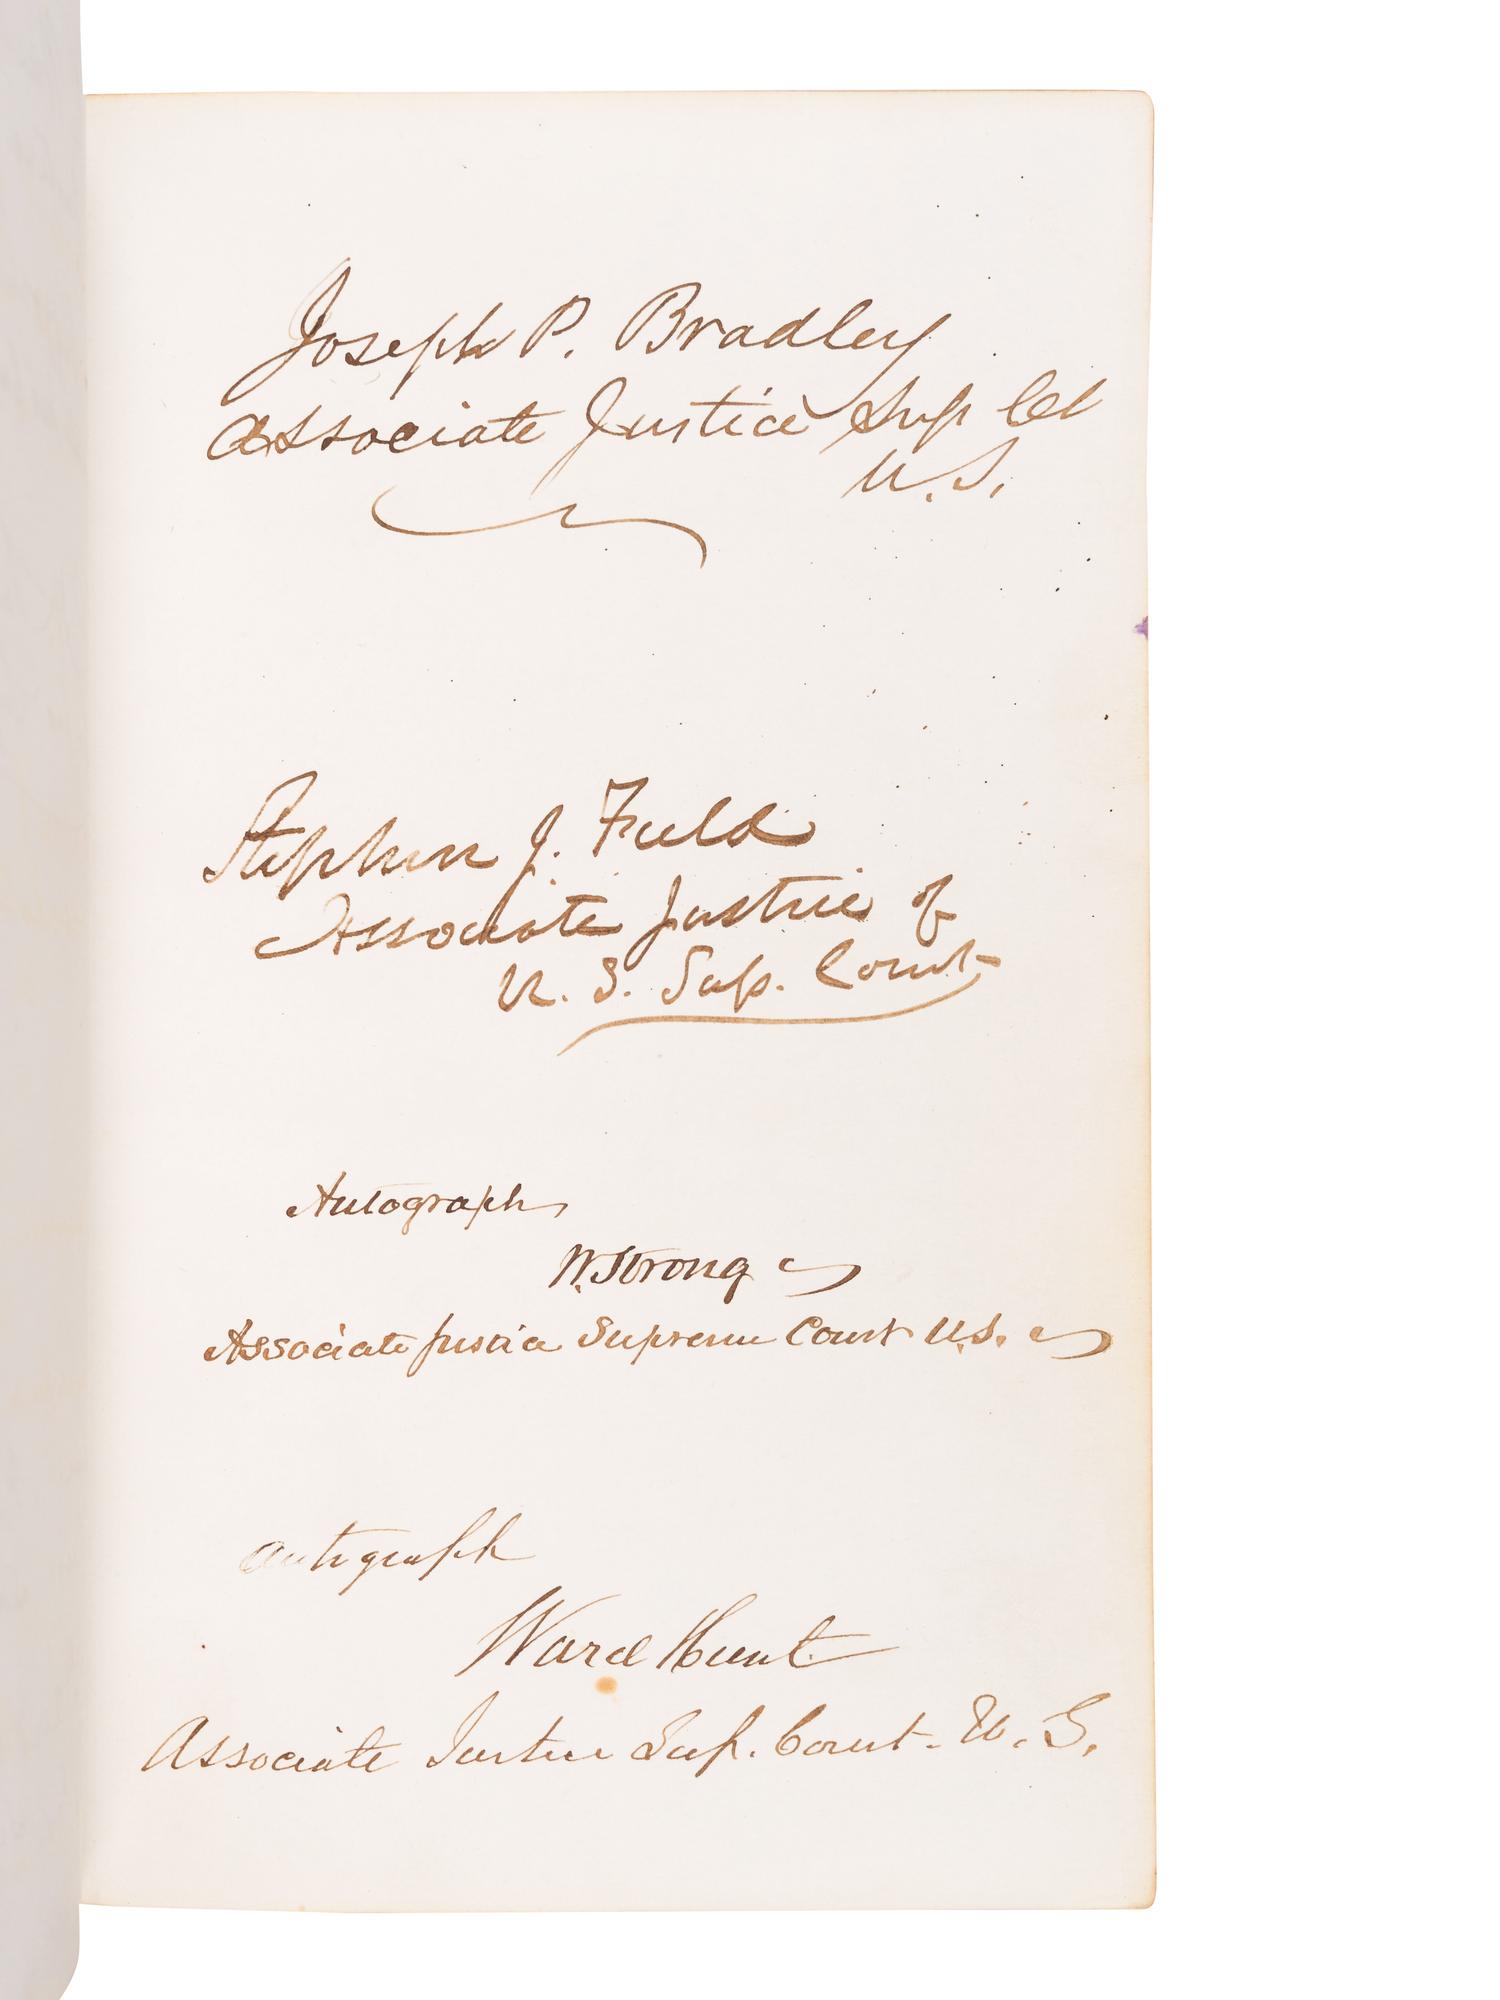 Joseph P. Bradley
Associate Justice Sup Ct
U.S.
Stephen J. Field
Associate Justice of
U. S. Sup. Court
Autograph
W. Strong
Associate Justice Supreme Court U.S.
Autograph
Ward Hunt
Associate Justice Sup. Court. U. S.